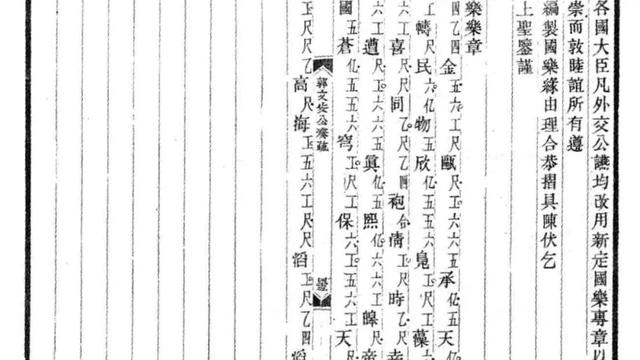 各國大臣凡外交公讌均改用新定國樂專章以
崇而敦睦誼所有遵
編製國樂緣由理合恭摺具陳伏乞
上聖鑒謹
樂樂章
乙四金五六工尺甌工六六六五承仩五天
工幬民六仩物欣仩五五六鳧工尺工藻
工尺喜尺同乙尺乙四袍合清四尺時乙尺幸
六工遭尺工六六五真仩五熙仩六六工皞帝
國蒼仩五五六穹工尺工保六工五六工天
郭文安公奏疏
尺尺乙高尺海工五六工尺尺滔工尺乙四滔